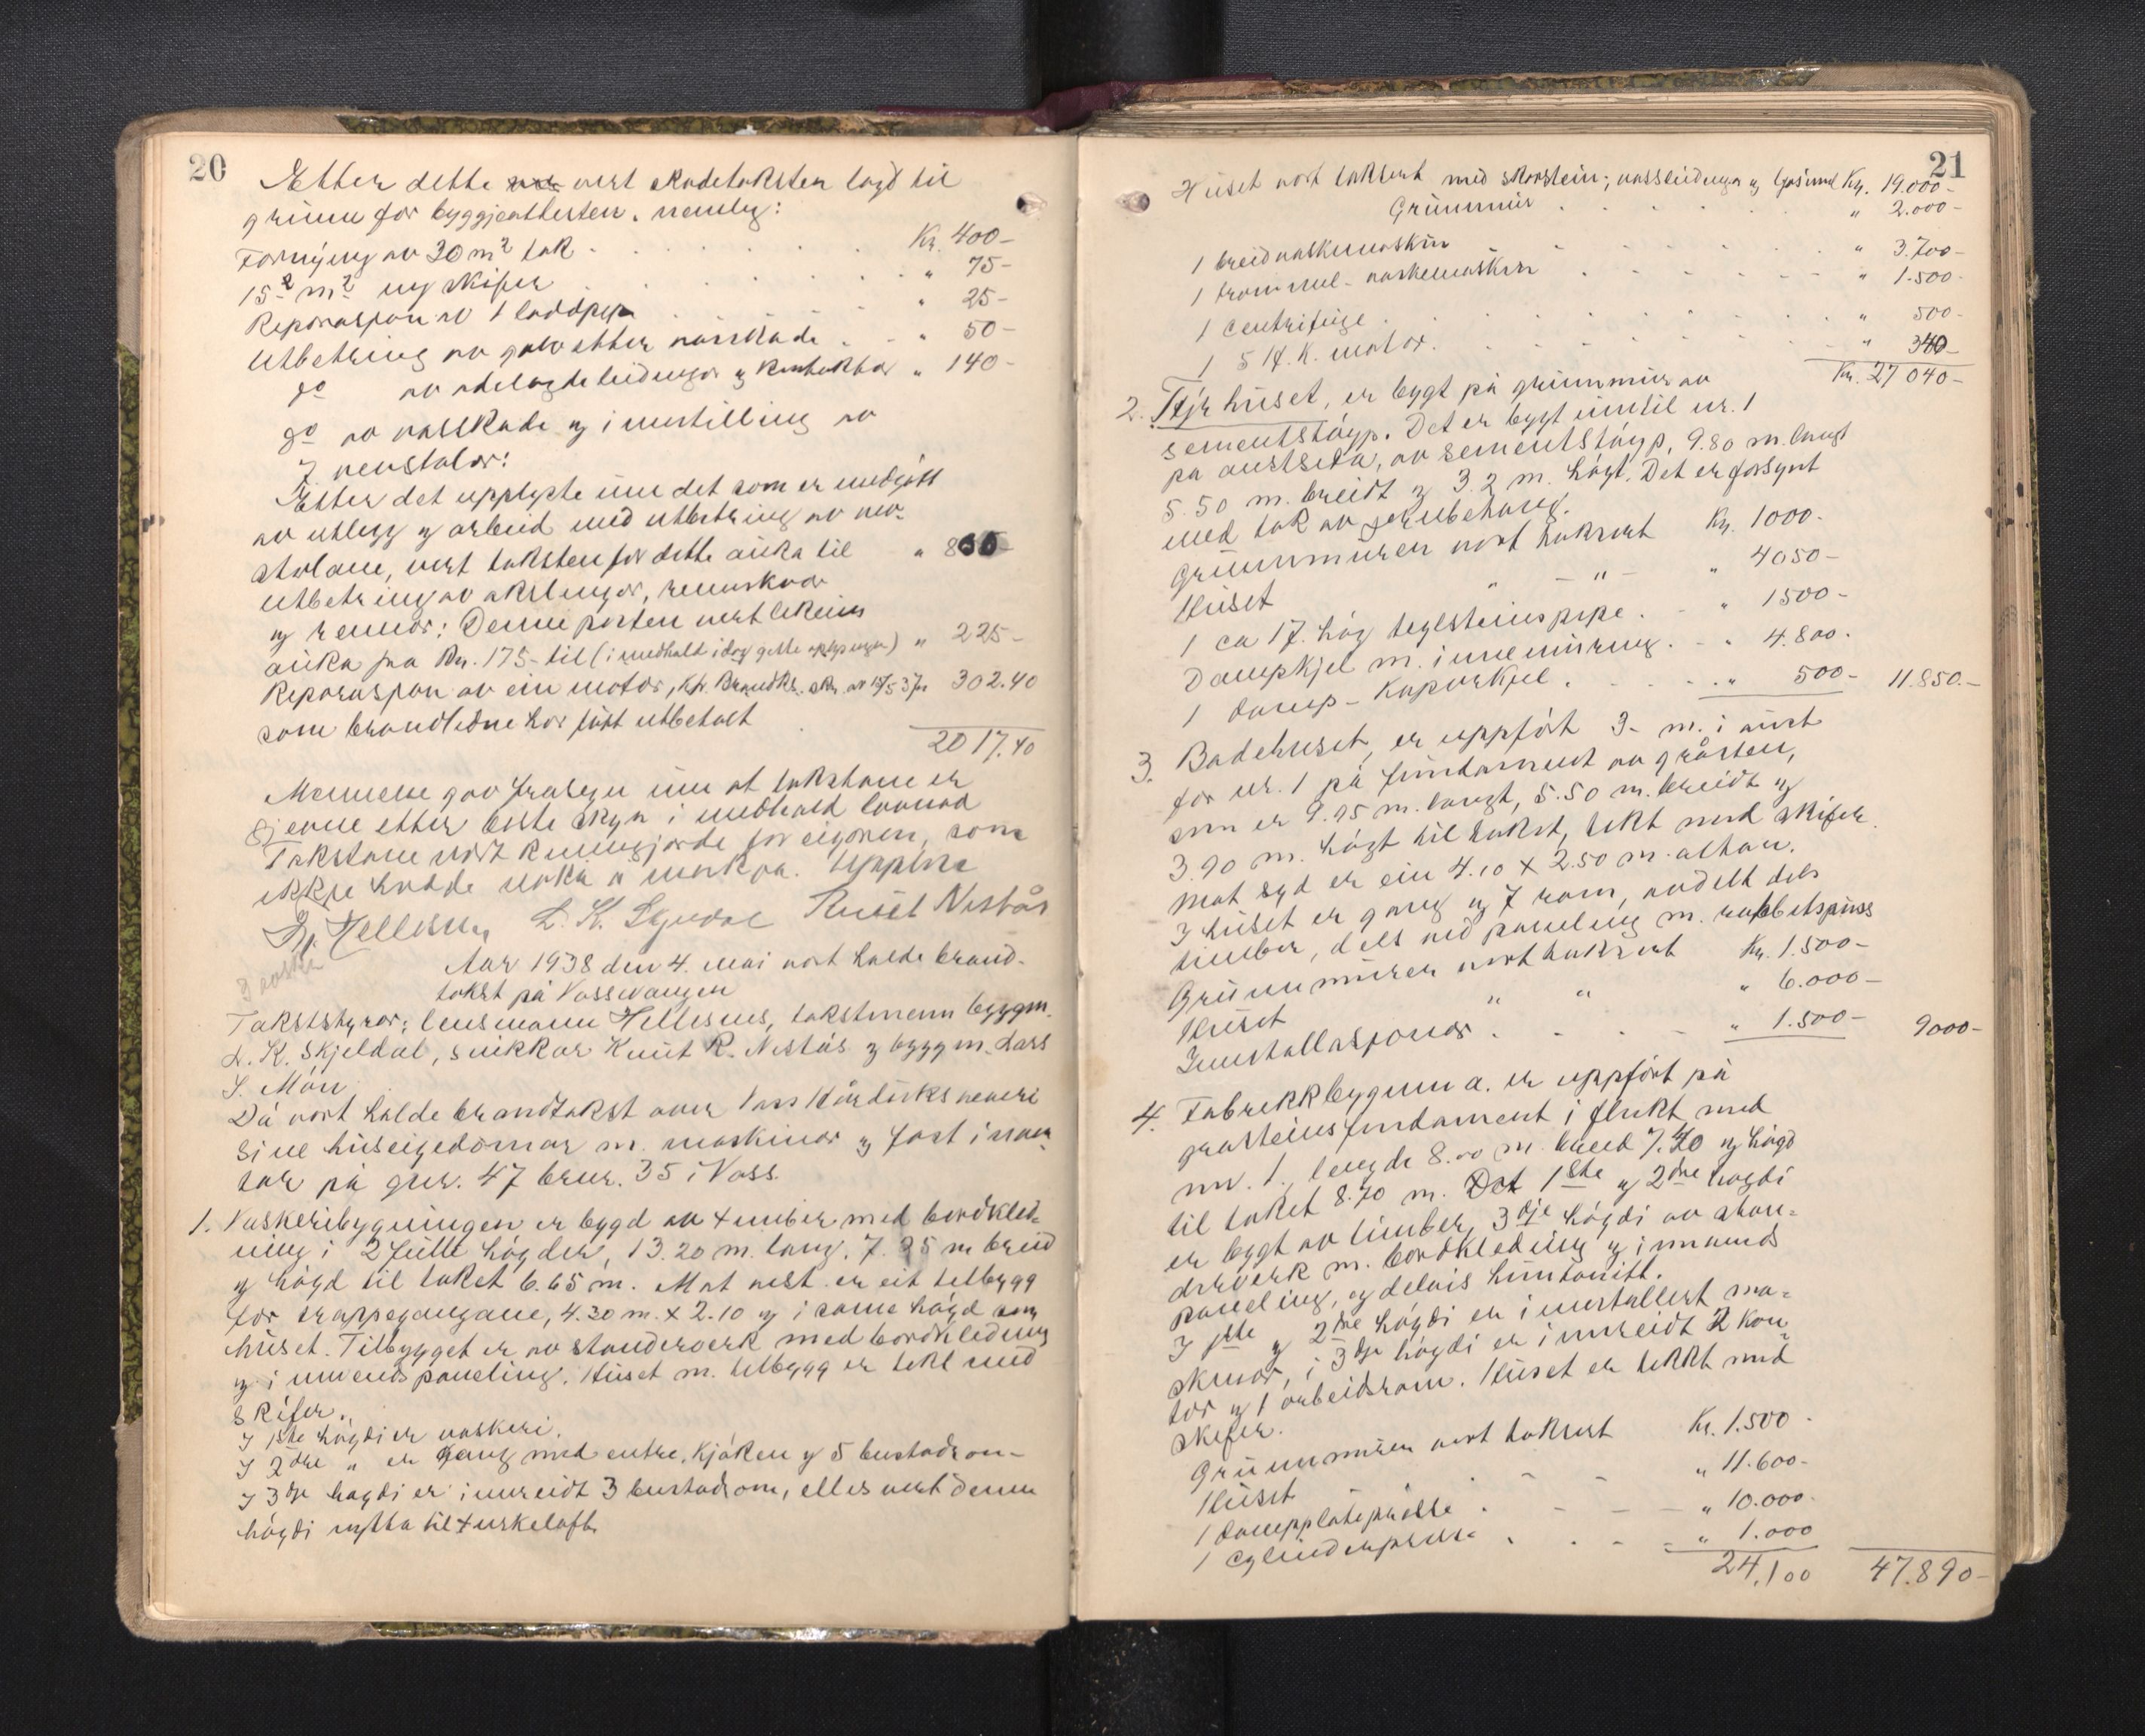 20
Etter dette vert skadetaksten lagd til
grunn for byggjeattesten, nemleg:
Fornying av 30 m² tak . . . . . Kr. 400-
15² m² ny skifer . . . . . " 75-
Reparasjon av 1 laddpipa . . . " 25-
Utbetring av golv etter vasskade . . " 50-
do av ödelagde leidingar og kontaktar " 140-
do av vasskade og innstilling av
7 vevstolar:
Etter det upplyste um det som er medgått
av utlegg og arbeid med utbetring av vev-
stolane, vert taksten for dette auka til " 800-
Utbetring av akslingar, remskivor
og remmar: Denne posten vert likeins
auka fra Kr. 175- til (i medhald i dag gjette upplysingar) " 225-
Reparasjon av ein motor, 15/5 37 302.40
som brandledne har fått utbetalt
2017.40
Mennene gav frasegn um at takstane er
gjevne etter beste skyn i medhald lovnad
Takstane vart kunngjorde for eigaren, som
ikkje hadde noko å merka. Upplese
Hellesnes L. K. Skjeldal Knut Nestås
Aar 1938 den 4. mai vart halde brand-
takst på Vossevangen
Takststyrar: lensmann Hellesnes, takstmenn byggm.
L. K. Skjeldal, snikkar Knut R. Nestås og byggm. Lars
S. Møn
Då vart halde brandtakst over Voss Hårduksveveri
sine huseigedomar m. maskinar og fast inven-
tar på gnr. 47 bnr. 35 i Voss.
1. Vaskeribygningen er bygd av timber med bordkled-
ning i 2 fulle högder, 13.20 m. lang, 7.95 m breid
og högd til taket 6.65 m. Mot vest er eit tilbygg
for trappegangane, 4.30 m. x 2.10 og i same högd som
huset. Tilbygget er av standerverk med bordkledning
og innvends paneling. Huset m. tilbygg er tekt med
skifer.
I 1ste högdi er vaskeri.
I 2dre " er gang med entre, kjöken og 5 bustadrom-
I 3dje högdi er innreidt 3 bustadrom, elles vert denne
högdi nytta til turkeloft.
21
Huset vort taksert med skorstein, vassleidingar og ljósinnl Kr. 19.000-
Grunnmur . . . . . " 2.000-
1 breidvaskemaskin . . . . . " 3.700-
1 trommel-vaskemaskin . . . . . " 1.500-
1 Centrifuge . . . . . " 500-
1 5 H.K. motor. . . . . " 340-
Kr. 27 040-
2. Fyrhuset, er bygt på grunnmur av
sementstöyp. Det er bygt inntil nr. 1
på austsida, av sementstöyp, 9.80 m. langt
5.50 m. breidt og 3.2 m. högt. Det er forsynt
med tak av jernbetong.
Grunnmuren vort taksert Kr. 1000-
Huset " - " - " 4050-
1 ca 17. hög teglsteinspipe . - " 1500-
Dampkjel m. innemuring . - " 4.800.
1 damp-koparkjel . . . . " 500- 11.850.-
3. Badehuset, er uppfört 3- m. i aust
for nr. 1 på fundament av gråstein,
som er 9.95 m. langt, 5.50 m. breidt og
3.90 m. högt til taket, tekt med skifer.
Mot syd er ein 4.10 x 2.50 m. altan.
I huset er gang og 7 rom, avdelt dels
timber, dels ved paneling m. rabbetspuss
Grunnmuren vort taksert Kr. 1.500-
Huset " " " 6.000-
Innstallasjonar . . - - " 1.500- 9000-
4. Fabrikkbygnin a. er uppfört på
grasteinsfundament i flukt med
nr. 1., lengde 8.00 m. breid 7.40 og högd
til taket 8.70 m. Det 1ste og 2dre högdi
er bygt av timber, 3dje högdi av stan-
derverk m. bordkledning og innvends
paneling, og delvis huntonitt.
I 1ste og 2dre högdi er innstallert ma-
skinor, i 3dje högdi er innreidt 2 kon-
tor og 1 arbeidsrom. Huset er tekkt med
skifer.
Grunnmuren vort taksert Kr. 1.500-
Huset " 11.600-
1 dampplatepresse . - - - " 10.000-
1 Cylinderpresse . . - = " 1.000
24.100 47.890-